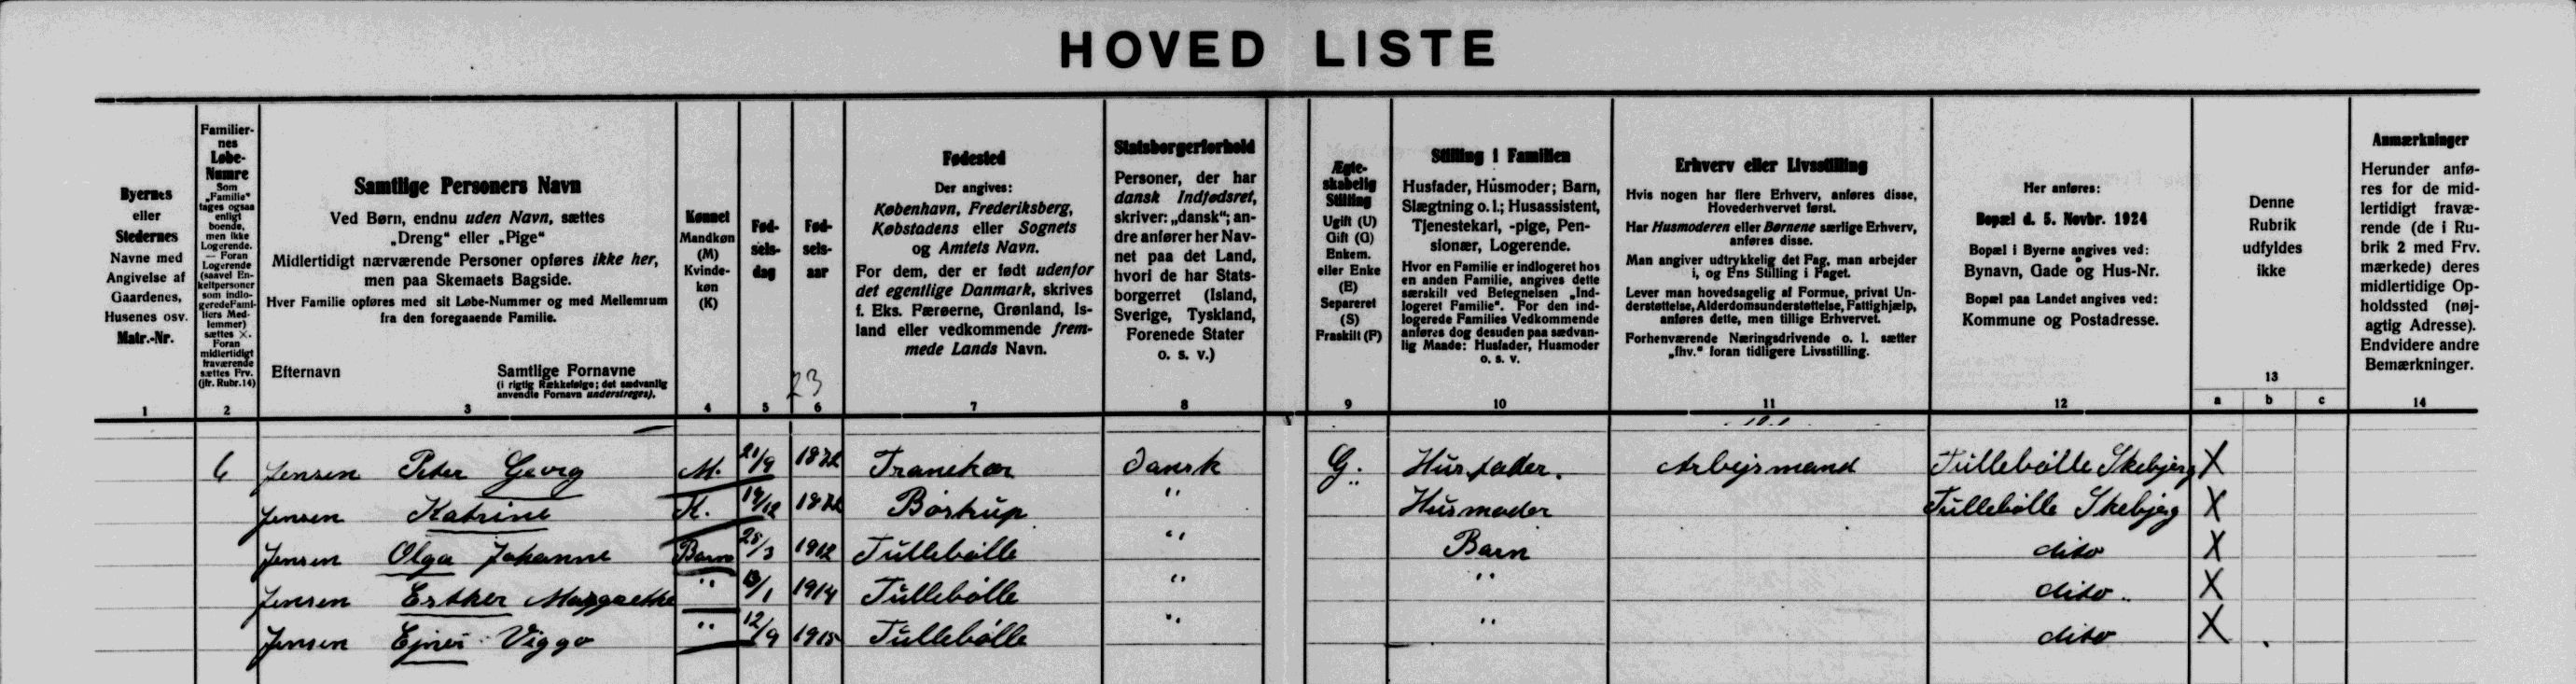 HOVED LISTE
Byernes
eller
Stedernes
Navne med
Angivelse af
Gaardenes,
Husenes osv.
Matr.-Nr.
1
Familier-
nes
Løbe-
Numre
Som
„Familie“
tages ogsaa
enligt
boende,
men ikke
Logerende.
— Foran
Logerende
(saavel En-
keltpersoner
som indlo-
gerede Fami-
liers Med-
lemmer)
sættes ×.
Foran
midlertidigt
fraværende
sættes Frv.
(jfr. Rubr.14)
2
Samtlige Personers Navn
Ved Børn, endnu uden Navn, sættes
„Dreng“ eller „Pige“
Midlertidigt nærværende Personer opføres ikke her,
men paa Skemaets Bagside.
Hver Familie opføres med sit Løbe-Nummer og med Mellemrum
fra den foregaaende Familie.
Efternavn Samtlige Fornavne
(i rigtig Rækkefølge; det sædvanlig
anvendte Fornavn understreges).
3
Kønnet
Mandkøn
(M)
Kvinde-
køn
(K)
4
Fød-
sels-
dag
5
Fød-
sels-
aar
23
6
Fødested
Der angives:
København, Frederiksberg,
Købstadens eller Sognets
og Amtets Navn.
For dem, der er født udenfor
det egentlige Danmark, skrives
f. Eks. Færøerne, Grønland, Is-
land eller vedkommende frem-
mede Lands Navn.
7
Statsborgerforhold
Personer, der har
dansk Indfødsret,
skriver: „dansk“; an-
dre anfører her Nav-
net paa det Land,
hvori de har Stats-
borgerret (Island,
Sverige, Tyskland,
Forenede Stater
o. s. v.)
8
Ægte-
skabelig
Stilling
Ugift (U)
Gift (G)
Enkem.
eller Enke
(E)
Separeret
(S)
Fraskilt (F)
9
Stilling i Familien
Husfader, Husmoder; Barn,
Slægtning o. l.; Husassistent,
Tjenestekarl, -pige, Pen-
sionær, Logerende.
Hvor en Familie er indlogeret hos
en anden Familie, angives dette
særskilt ved Betegnelsen „Ind-
logeret Familie“. For den ind-
logerede Families Vedkommende
anføres dog desuden paa sædvan-
lig Maade: Husfader, Husmoder
o. s. v.
10
Erhverv eller Livsstilling
Hvis nogen har flere Erhverv, anføres disse,
Hovederhvervet først.
Har Husmoderen eller Børnene særlige Erhverv,
anføres disse.
Man angiver udtrykkelig det Fag, man arbejder
i, og Ens Stilling i Faget.
Lever man hovedsagelig af Formue, privat Un-
derstøttelse, Alderdomsunderstøttelse, Fattighjælp,
anføres dette, men tillige Erhvervet.
Forhenværende Næringsdrivende o. l. sætter
„fhv.“ foran tidligere Livsstilling.
11
Her anføres:
Bopæl d. 5. Novbr. 1924
Bopæl i Byerne angives ved:
Bynavn, Gade og Hus-Nr.
Bopæl paa Landet angives ved:
Kommune og Postadresse.
12
Denne
Rubrik
udfyldes
ikke
13
a b c
Anmærkninger
Herunder anfø-
res for de mid-
lertidigt fravæ-
rende (de i Ru-
brik 2 med Frv.
mærkede) deres
midlertidige Op-
holdssted (nøj-
agtig Adresse).
Endvidere andre
Bemærkninger.
14
6 Jensen Peter Georg M. 21/9 Tranekær Dansk G. Husfader. Arbejsmand Tullebølle Skebjerg X
Jensen Katrine K. 19/12 Børstrup " Husmoder Tullebølle Skebjerg X
Jensen Olga Johanne Barn 25/3 1912 Tullebølle " Barn dito X
Jensen Esther Margrethe " 13/1 1914 Tullebølle " " dito X
Jensen Ejner Viggo " 12/9 1915 Tullebølle " " dito X